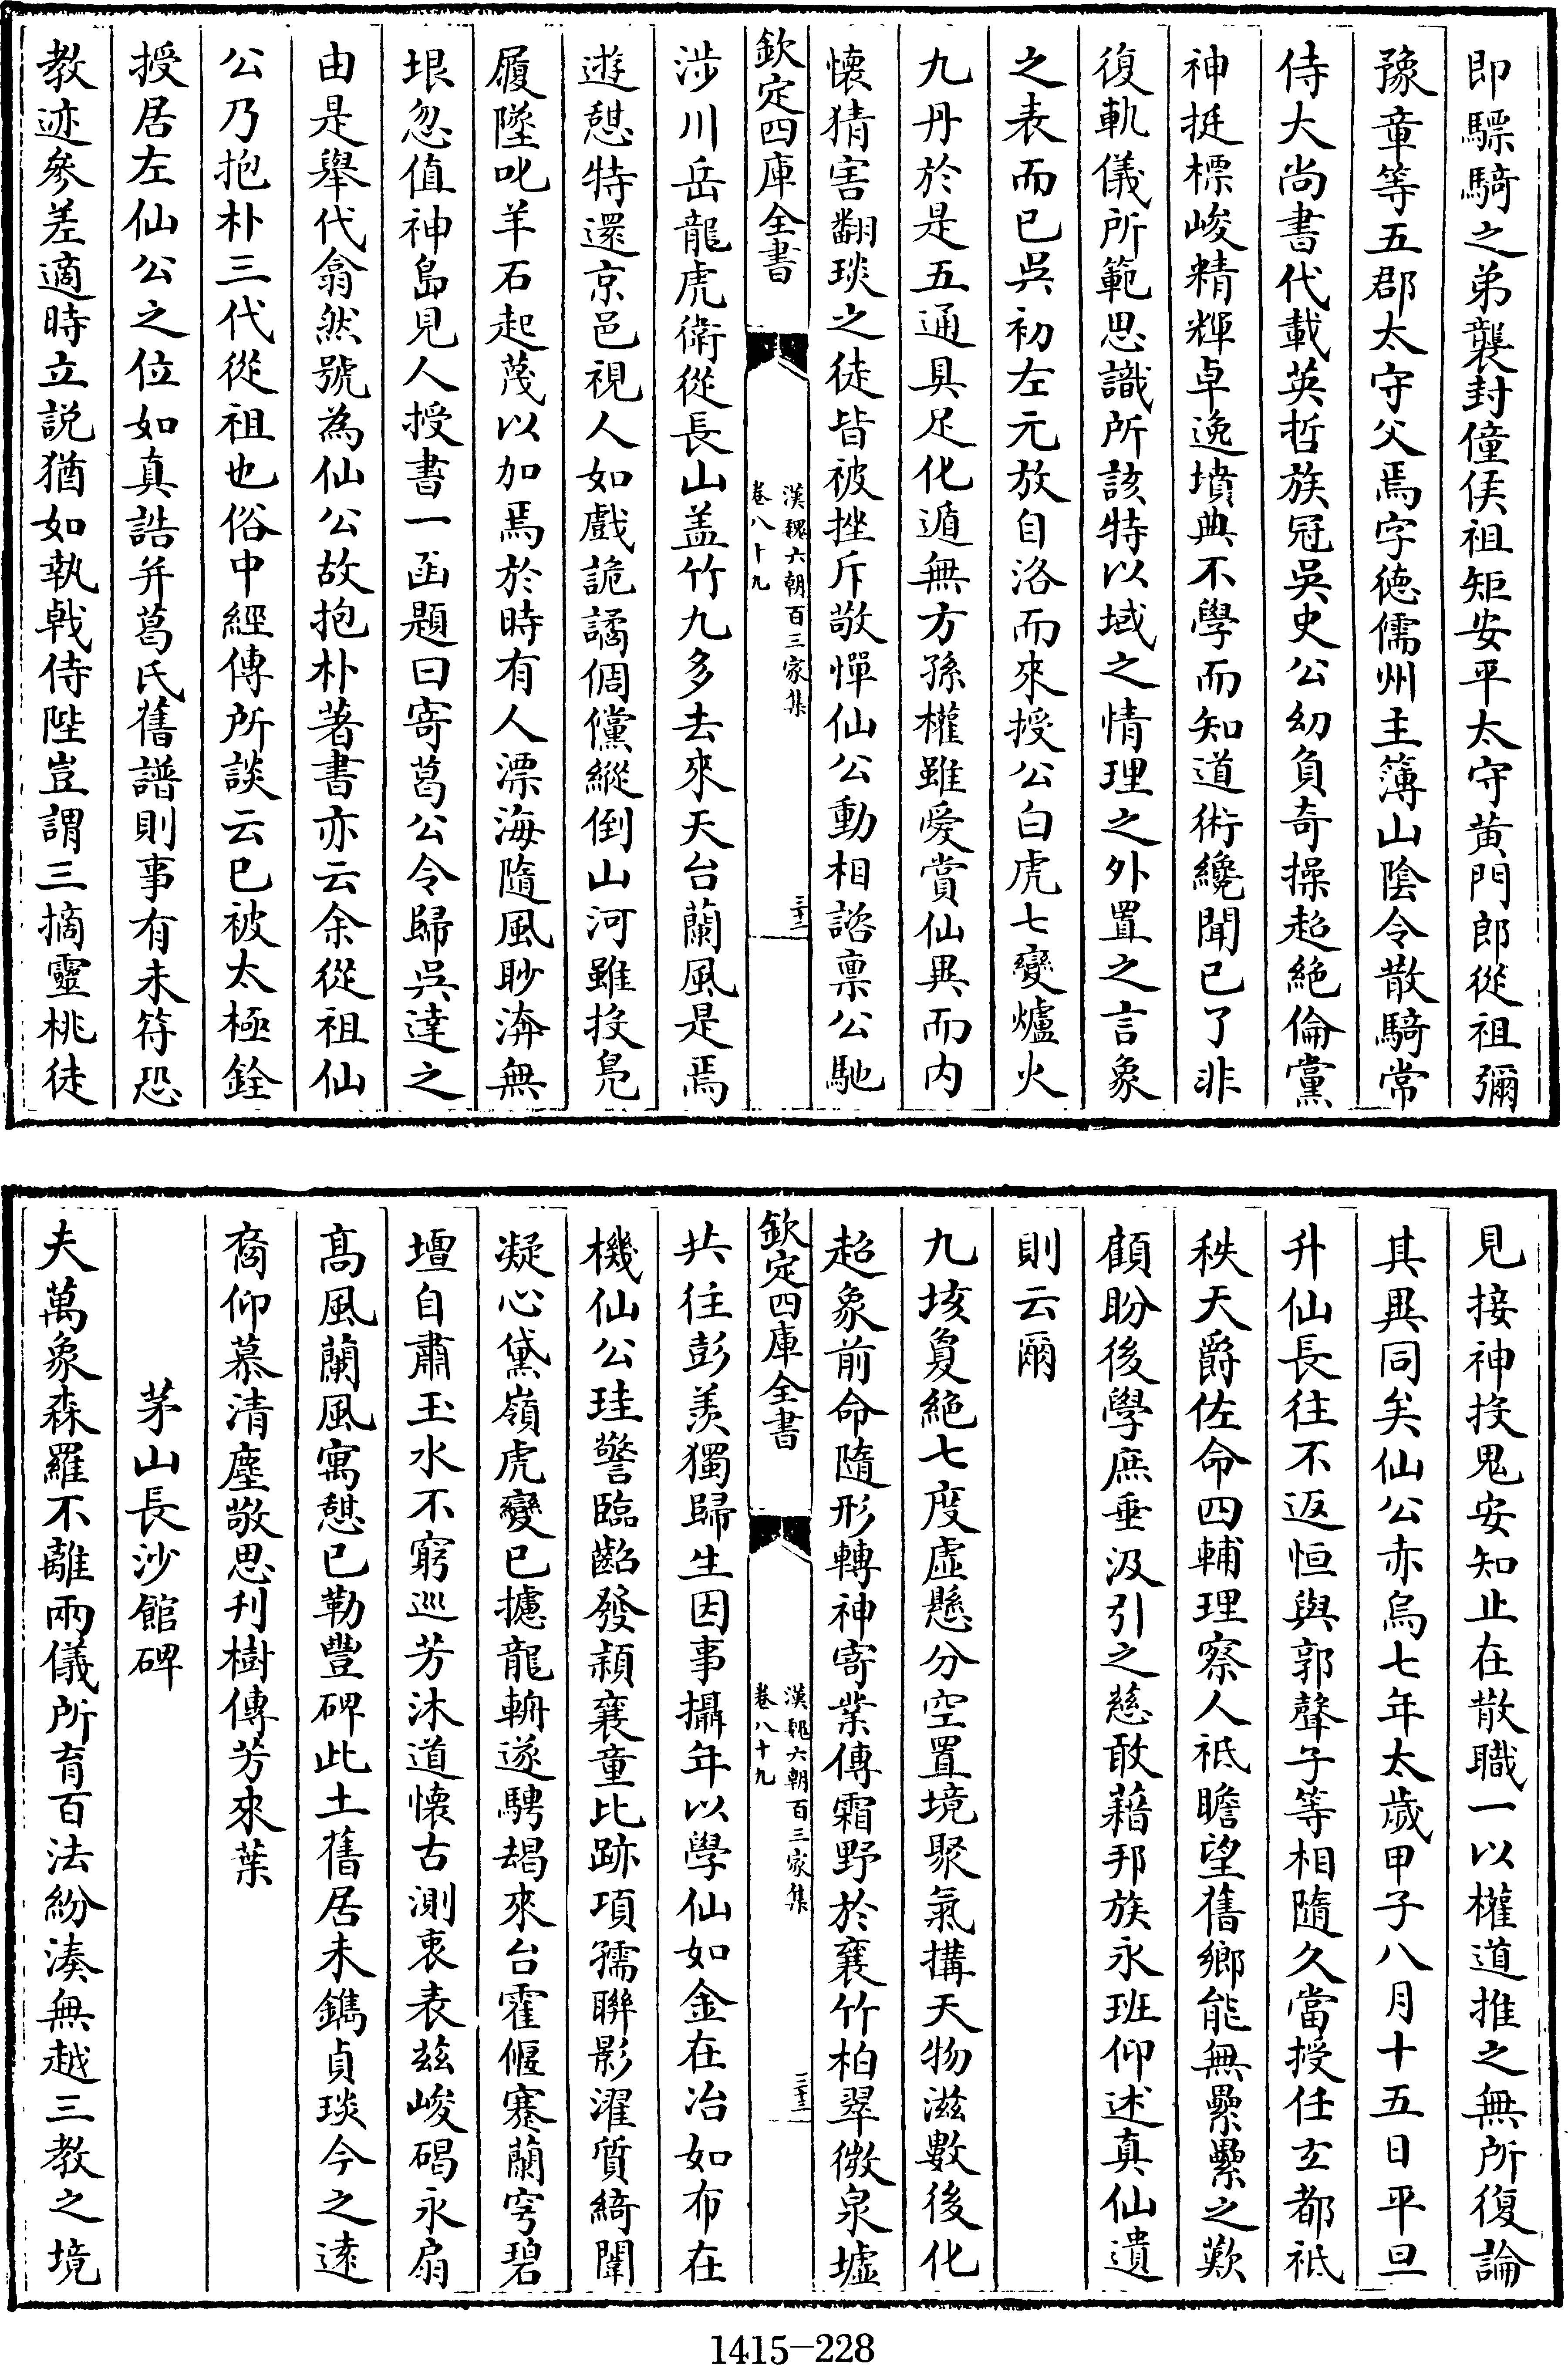 即驃騎之弟襲封僮侯祖矩安平太守黄門郎從祖彌
豫章等五郡太守父焉字徳儒州主簿山陰令散騎常
侍大尚書代載英哲族冠吳史公幼負奇操超絶倫黨
神挺標峻精輝卓逸墳典不學而知道術纔聞已了非
復軌儀所範思識所該特以域之情理之外置之言象
之表而已吳初左元放自洛而來授公白虎七變爐火
九丹於是五通具足化遁無方孫權雖愛賞仙異而内
懐猜害翻琰之徒皆被挫斥敬憚仙公動相諮禀公馳
欽定四庫全書
漢魏六朝百三家集
卷八十九
三十三
涉川岳龍虎衛從長山盖竹九多去來天台蘭風是焉
遊憩特還京邑視人如戲詭譎倜儻縱倒山河雖投鳧
履墜叱羊石起蔑以加焉於時有人漂海隨風眇漭無
垠忽值神島見人授書一函題曰寄葛公令歸吳達之
由是舉代翕然號為仙公故抱朴著書亦云余從祖仙
公乃抱朴三代從祖也俗中經傳所談云已被太極銓
授居左仙公之位如真誥并葛氏舊譜則事有未符恐
教迹參差適時立說猶如執戟侍陛豈謂三摘靈桃徒
見接神投鬼安知止在散職一以權道推之無所復論
其異同矣仙公赤烏七年太歲甲子八月十五日平旦
升仙長往不返恒與郭聲子等相隨久當授任玄都祗
秩天爵佐命四輔理察人祗瞻望舊鄉能無纍纍之歎
顧盼後學庶垂汲引之慈敢藉邦族永班仰述真仙遺
則云爾
九垓夐絶七度虛懸分空置境聚氣搆天物滋數後化
超象前命隨形轉神寄業傳霜野於襄竹柏翠微泉墟
欽定四庫全書
漢魏六朝百三家集
卷八十九
三十三
共往彭羨獨歸生因事攝年以學仙如金在冶如布在
機仙公珪警臨齠發頴襄童比跡項孺聯影濯質綺闈
凝心黛嶺虎變已攄龍輈遂騁朅來台霍偃蹇蘭穹碧
壇自肅玉水不窮巡芳沐道懐古測衷表兹峻碣永扇
髙風蘭風寓憩已勒豐碑此土舊居未鐫貞琰今之逺
裔仰慕清塵敬思刋樹傳芳來葉
茅山長沙館碑
夫萬象森羅不離兩儀所育百法紛湊無越三教之境
1415-228